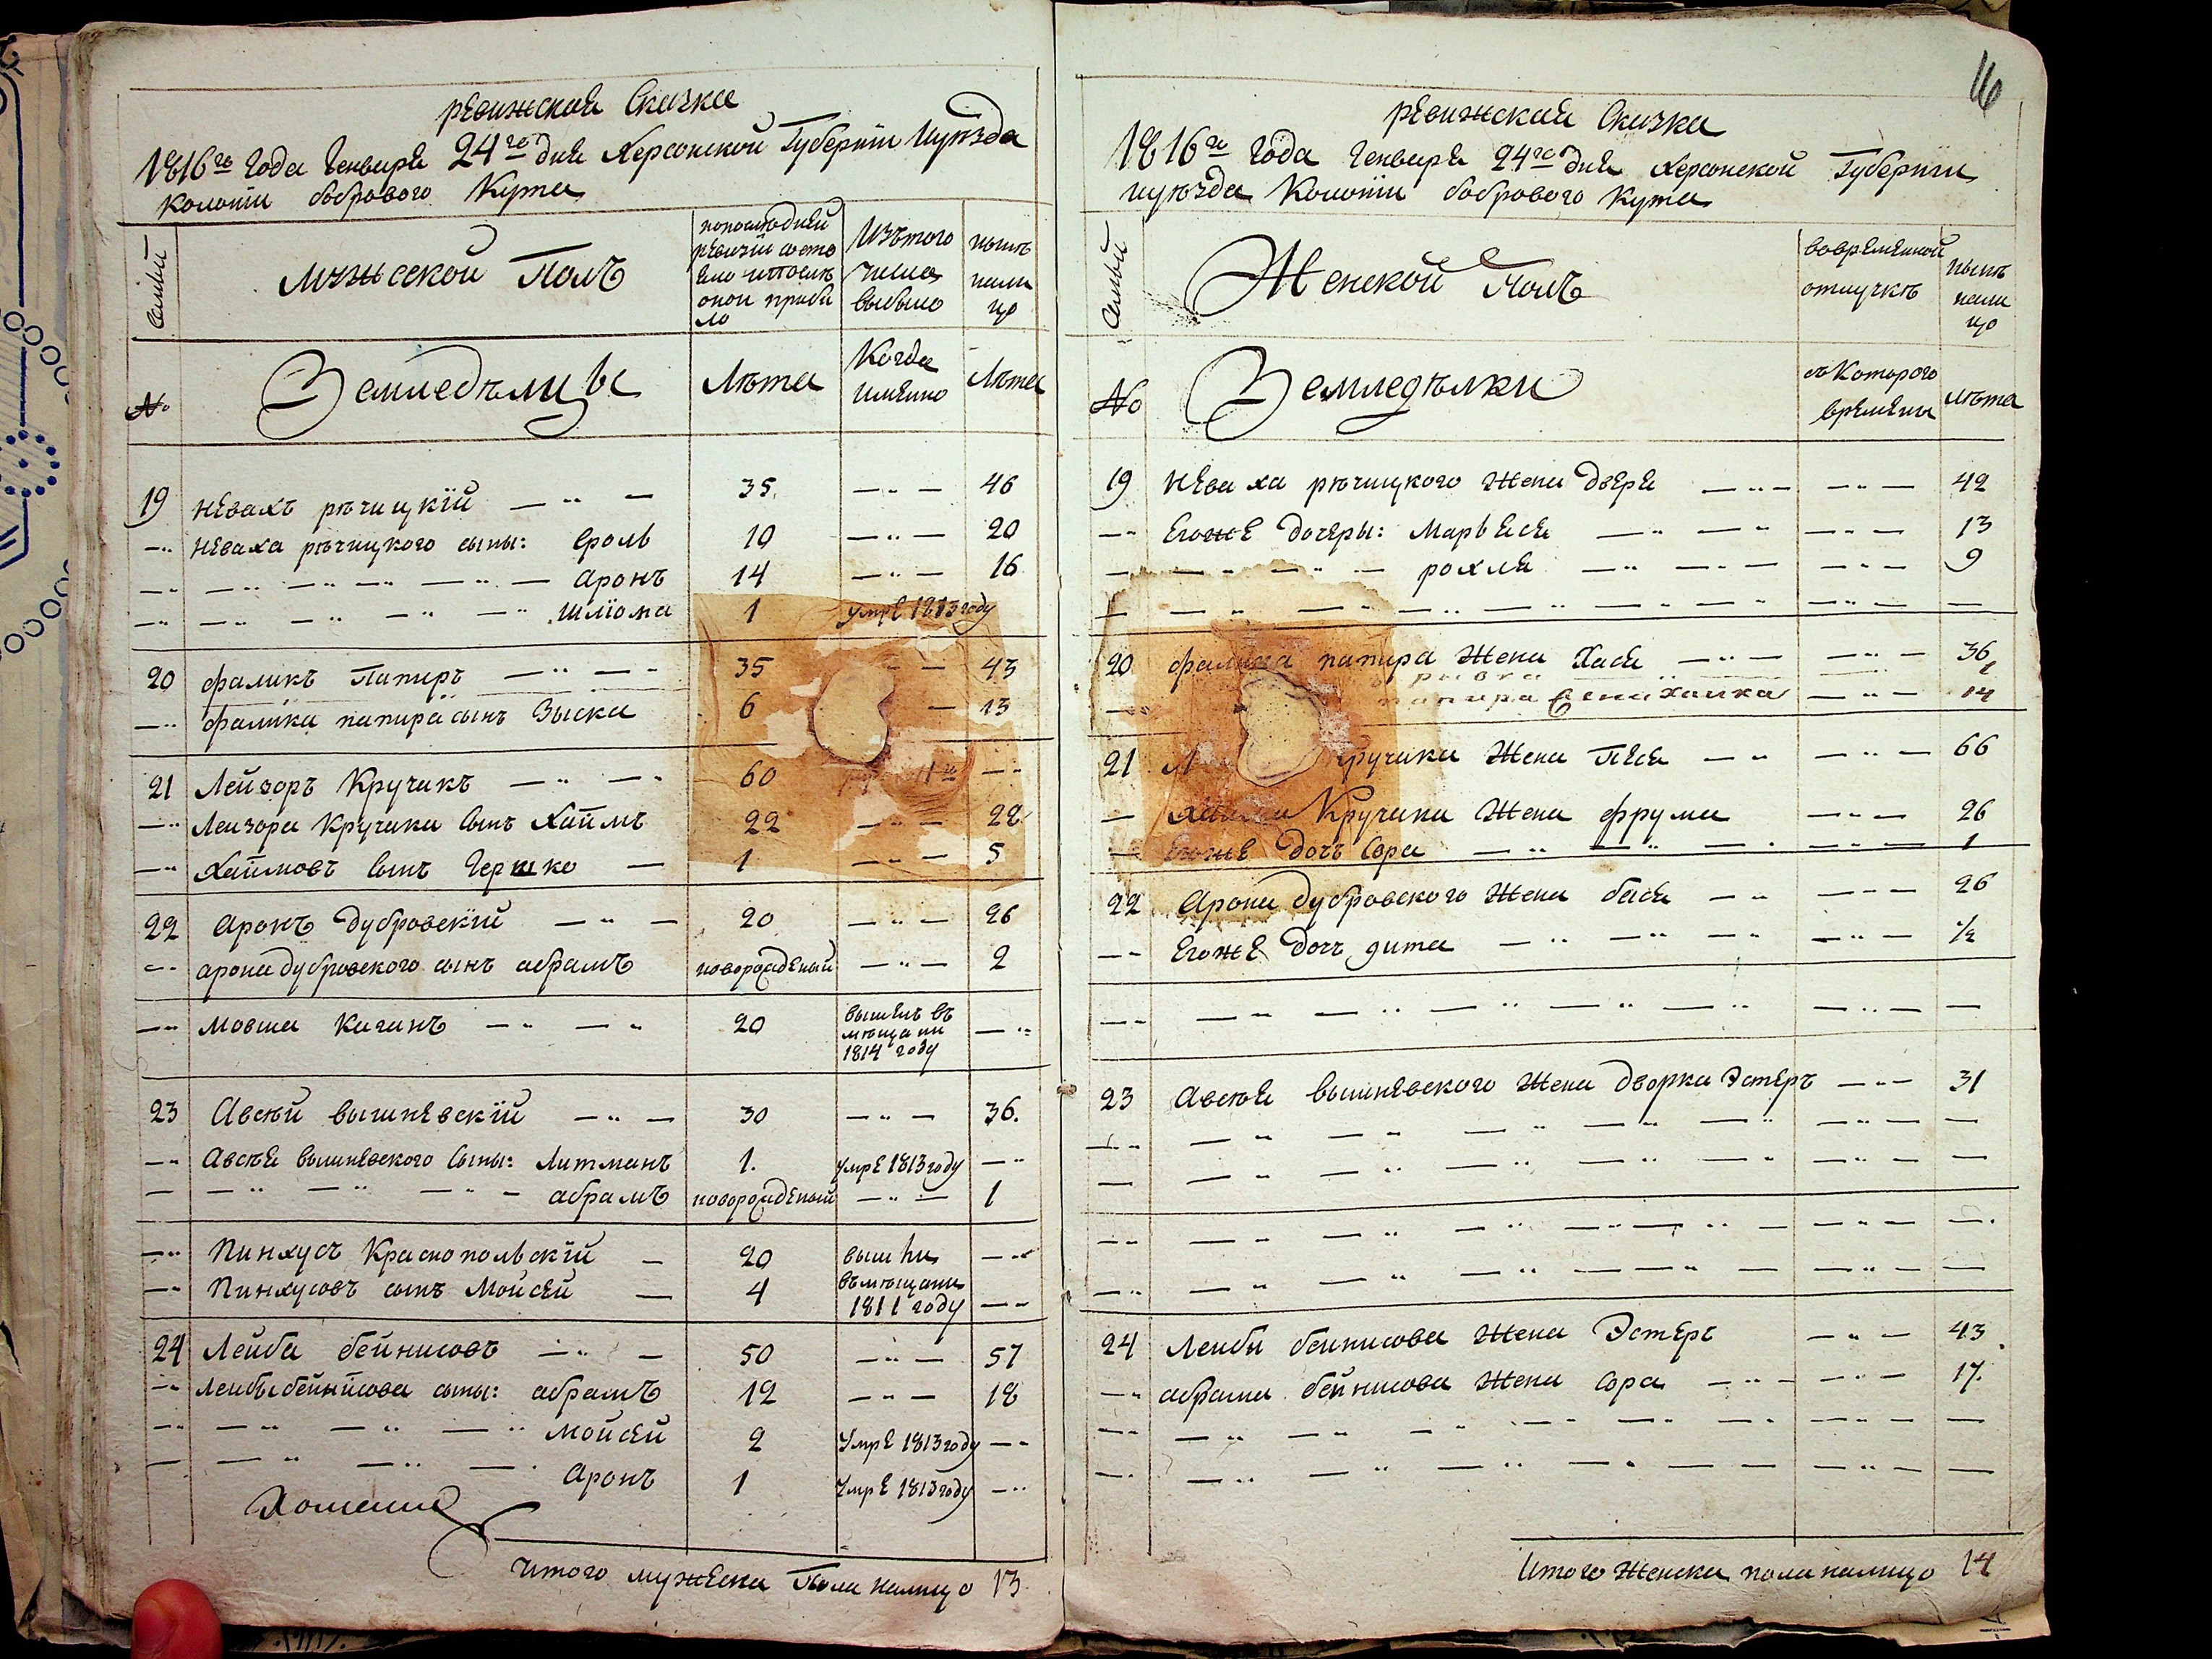 ревижская Сказка
1816го Года Генваря 24го дня Херсонской Губернии Иуѣзда
колонти бобрового Кута
Семьи
мужеской Полъ
попослѣдней ревизїи состояло ипослѣ оной прибыло
Изътого числа выбыло
нынѣ налицо
№
Земледѣльцы
Лѣта
Когда имянно
Лѣта
19 Невахъ рѣчицкїй — 35 — 46
Неваха рѣчицкого сыны: Сроль 10 — 20
Аронъ 14 — 16
Шлїома 1 умре 1813 году
20 фаликъ Папиръ — 35 — 43
фалика папира сынъ Зыска 6 — 13
21 Лейзоръ Кручикъ — 60
Леизора Кручика Сынъ Хаймъ 22 — 22
Хаймовъ Сынъ Гершко — 1 — 5
22 Аронъ Дубровскїй — 20 — 26
арона дубровского сынъ абрамъ новорожденый — 2
мовша Каганъ — 20 вышелъ въ мѣщани 1814 году —
23 Авсѣй вышневскїй — 30 — 36.
Авсѣя вышневского Сыны: Литманъ 1. умре 1813 году —
абрамъ новорожденый — 1
Пинхусъ Краснопольскїй — 20 вышли —
Пинхусовъ сынъ Мойсей — 4 въмѣщани 1811 году —
24 Лейба бейнисовъ — 50 — 57
Леибы бейнисова сыны: абрамъ 12 — 18
мойсей 2 Умре 1813 году —
Аронъ 1 Умре 1813 году —
итого мужеска Пола налицо 13
16
ревижская Сказка
1816го Года Генваря 24го дня Херсонской Губернии
иуѣзда Колонти бобрового Кута
Семьи
Женской Полъ
вовременной отлучкѣ
нынѣ налицо
№
Земледѣлки
съКоторого времени
лѣта
19 Неваха рѣчицкого Жена Двера — 42
Егоже дочеры: Марьеся — 13
рохля — 9
20 фалика папира Жена Хася — 36
ривка — 1
папира Жена Хаика — 14
21 Кручика Жена Песя — 66
Хаима Кручика Жена фрума — 26
Егоже дочъ Сора — 1
22 Арона дубровского Жена бася — 26
Егоже дочъ дита — 1/2
23 Авсѣя вышневского Жена дворка Эстеръ — 31
24 Леибы бейнисова Жена Эстеръ — 43
абрама бейнисова Жена Сора — 17.
Итого Женска пола налицо 14